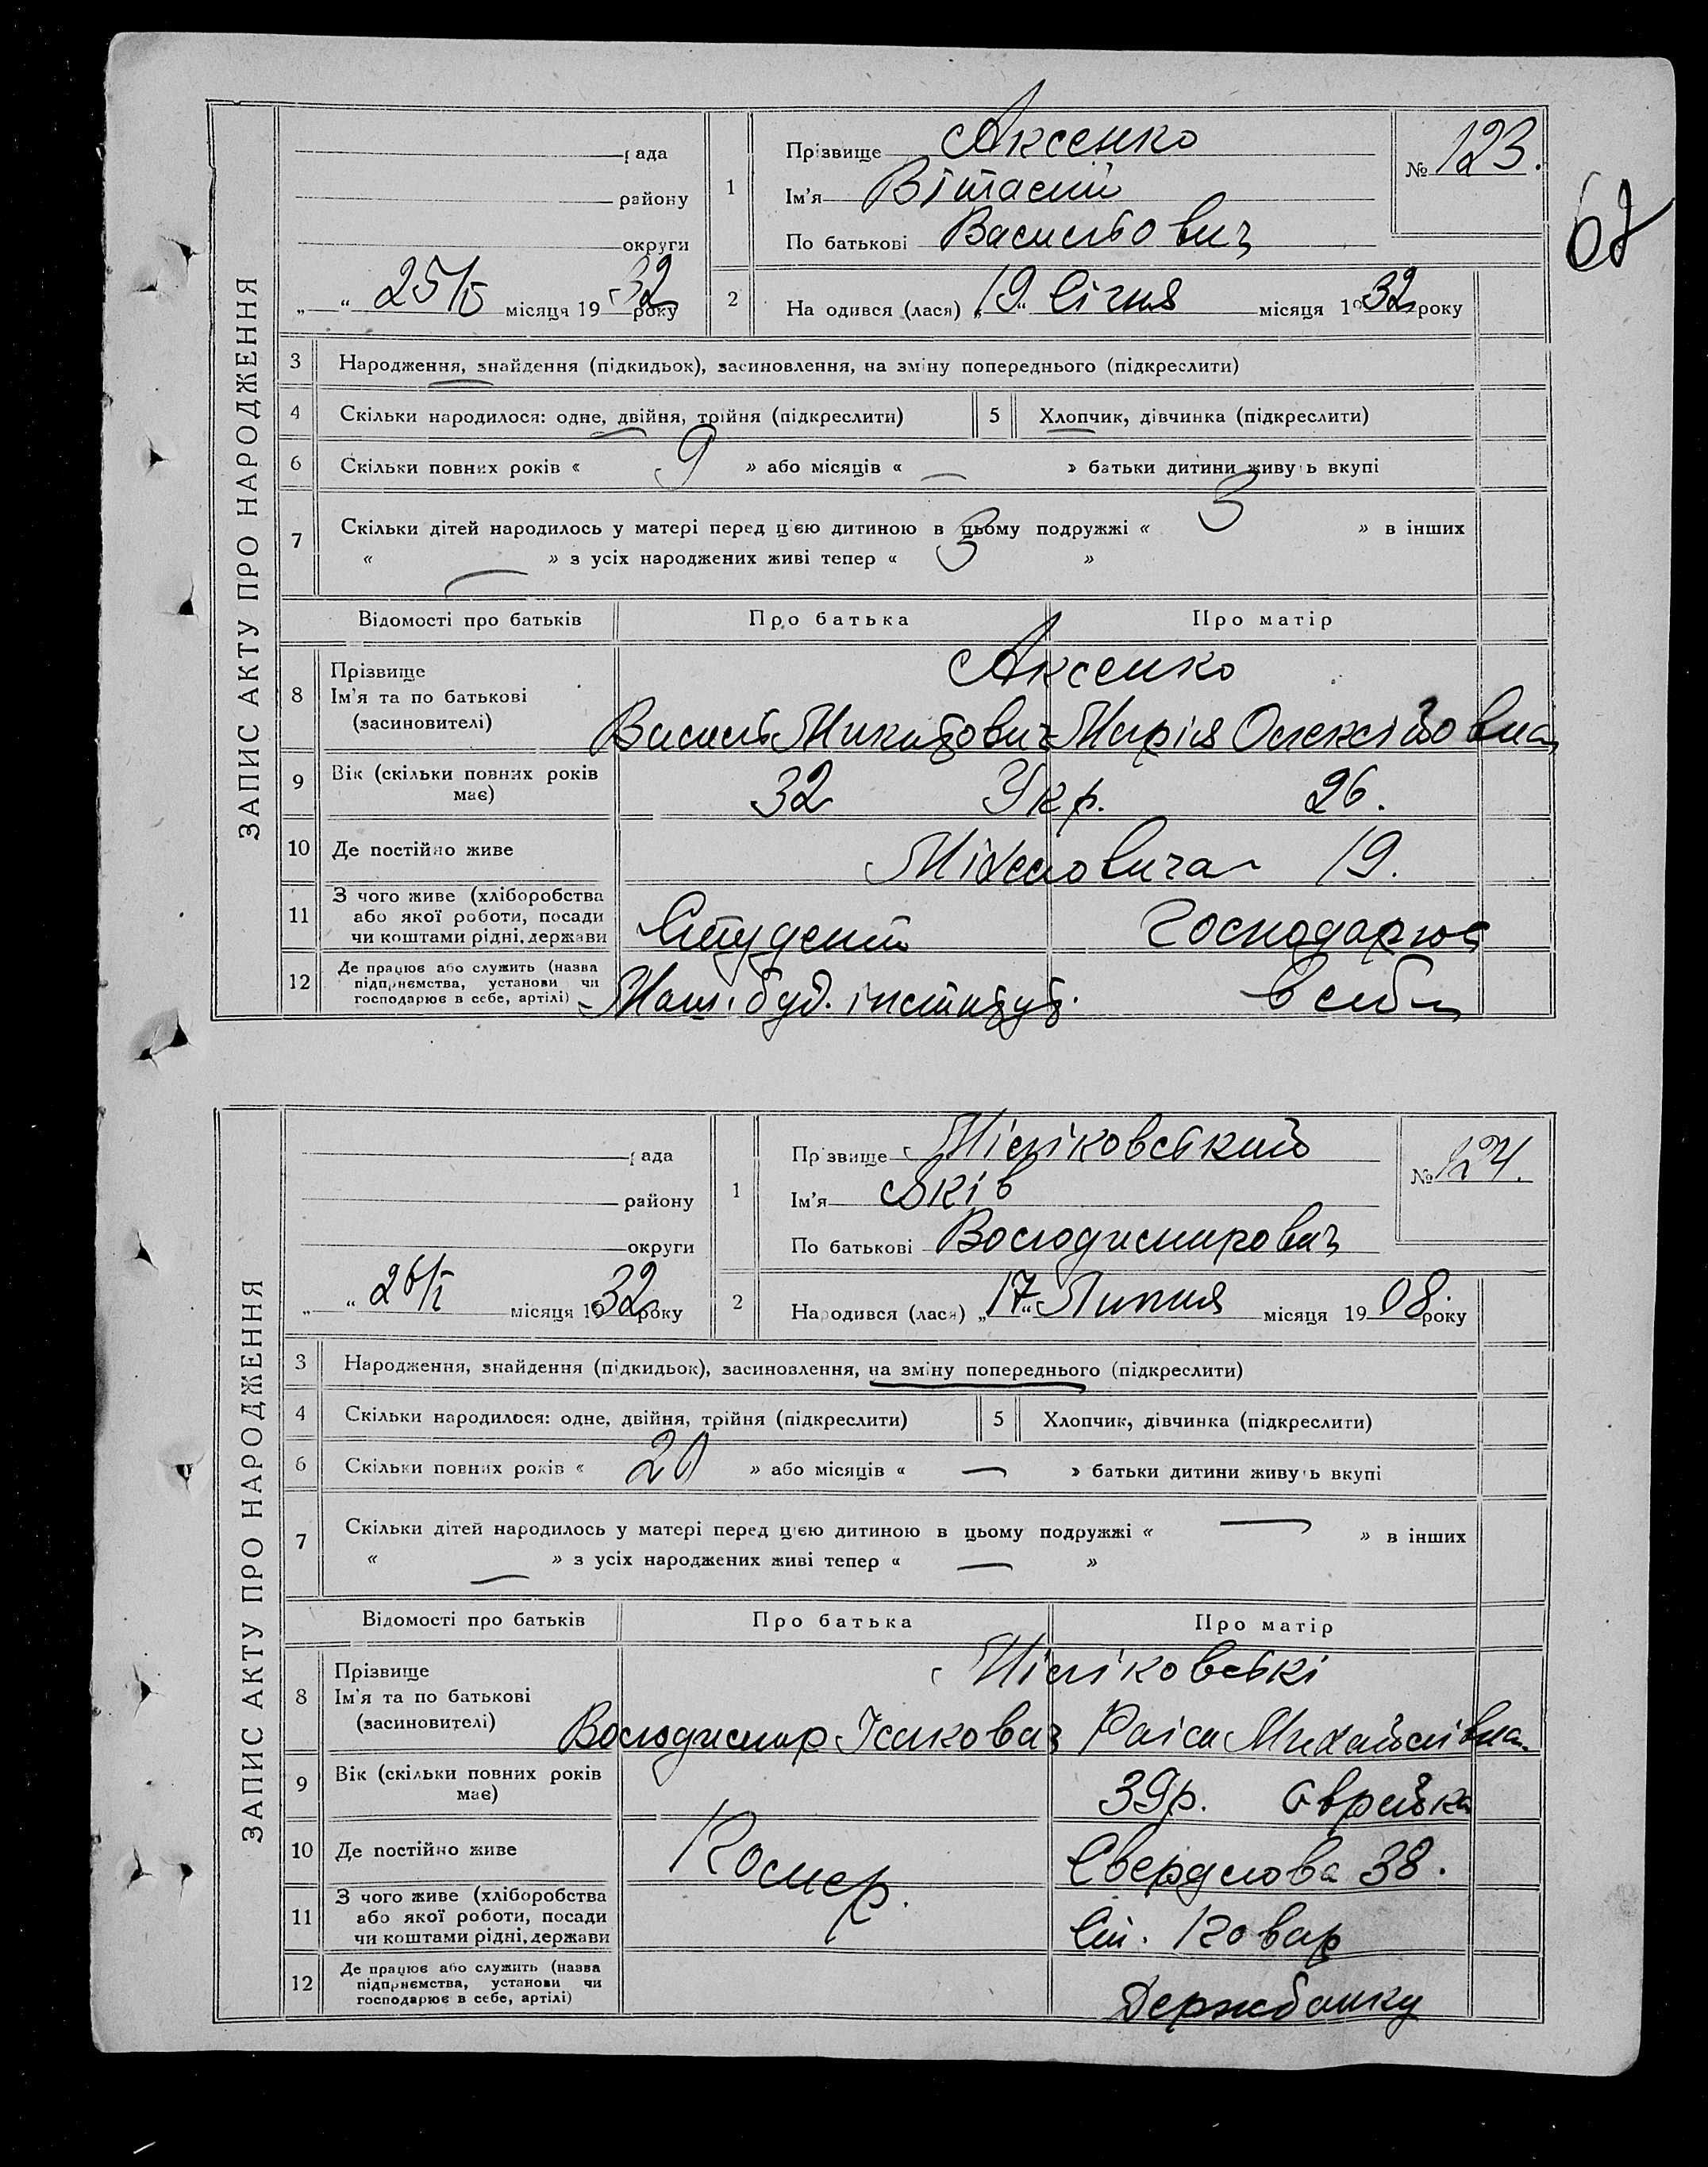 ЗАПИС АКТУ ПРО НАРОДЖЕННЯ
рада
району
округи
„ “ 25/I місяця 1932 року
1 Прізвище Аксенко
Ім'я Віталій
По батькові Васильович
№ 123.
67
2 Народився (лася) „19“ Січня місяця 1932 року
3 Народження, знайдення (підкидьок), засиновлення, на зміну попереднього (підкреслити)
4 Скільки народилося: одне, двійня, трійня (підкреслити) 5 Хлопчик, дівчинка (підкреслити)
6 Скільки повних років « 9 » або місяців « — » батьки дитини живуть вкупі
7 Скільки дітей народилось у матері перед цією дитиною в цьому подружжі « 3 » в інших
« — » з усіх народжених живі тепер « 3 »
Відомості про батьків Про батька Про матір
8 Прізвище Ім'я та по батькові (засиновителі) Аксенко
Василь Микитович Марія Олексіївна
9 Вік (скільки повних років має) 32 Укр. 26.
10 Де постійно живе Міхеловича 19.
11 З чого живе (хліборобства або якої роботи, посади чи коштами рідні, держави Студент Господарює
12 Де працює або служить (назва підприємства, установи чи господарює в себе, артілі) Маш. буд. інститут. в себе
ЗАПИС АКТУ ПРО НАРОДЖЕННЯ
рада
району
округи
„ “ 26/I місяця 1932 року
1 Прізвище Міліковський
Ім'я Яків
По батькові Володимирович
№ 124.
2 Народився (лася) „17“ Липня місяця 1908 року
3 Народження, знайдення (підкидьок), засиновлення, на зміну попереднього (підкреслити)
4 Скільки народилося: одне, двійня, трійня (підкреслити) 5 Хлопчик, дівчинка (підкреслити)
6 Скільки повних років « 20 » або місяців « — » батьки дитини живуть вкупі
7 Скільки дітей народилось у матері перед цією дитиною в цьому подружжі « — » в інших
« — » з усіх народжених живі тепер « — »
Відомості про батьків Про батька Про матір
8 Прізвище Ім'я та по батькові (засиновителі) Міліковські
Володимир Ісакович Раіса Михайлівна
9 Вік (скільки повних років має) 39р. Єврейка
10 Де постійно живе Помер. Свердлова 38.
11 З чого живе (хліборобства або якої роботи, посади чи коштами рідні, держави
12 Де працює або служить (назва підприємства, установи чи господарює в себе, артілі) Держбанку